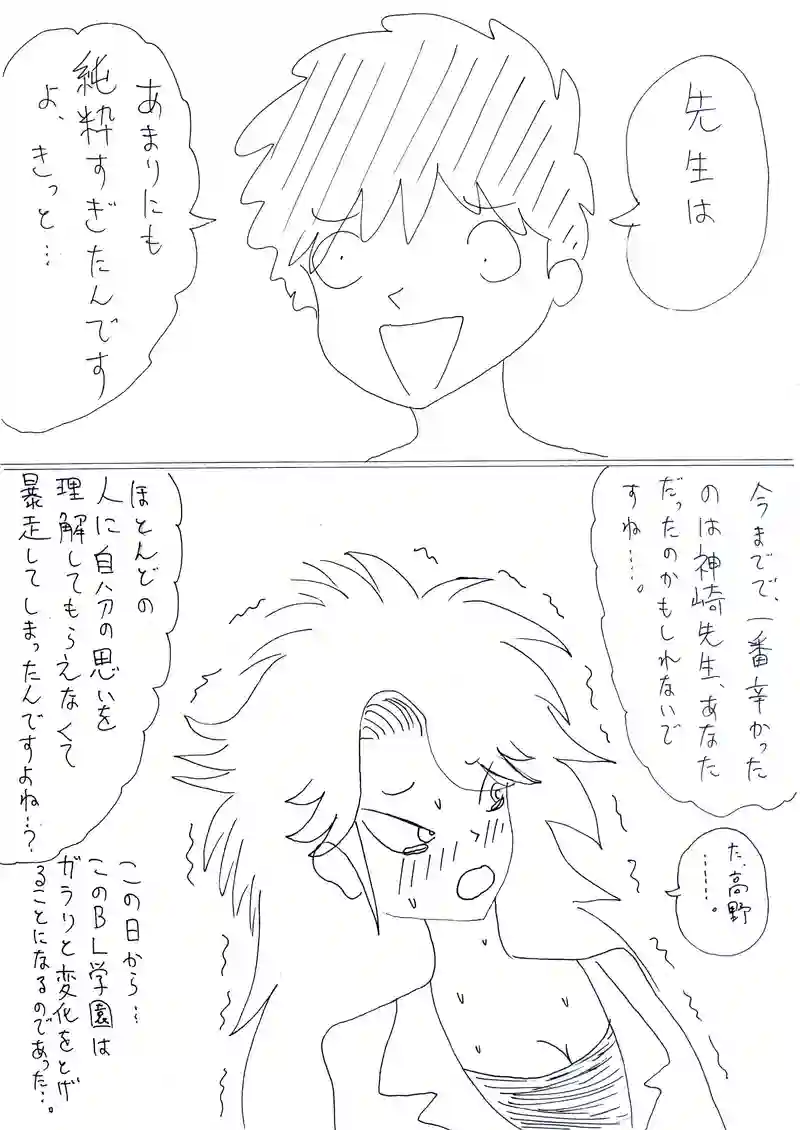 先生は
あまりにも
純粋すぎたんです
よ、きっと…
今までで、一番辛かった
のは神崎先生、あなた
だったのかもしれないで
すね……。
た、高野
……。
ほとんどの
人に自分の思いを
理解してもらえなくて
暴走してしまったんですよね…？
この日から…
このBL学園は
ガラリと変化をとげ
ることになるのであった…。